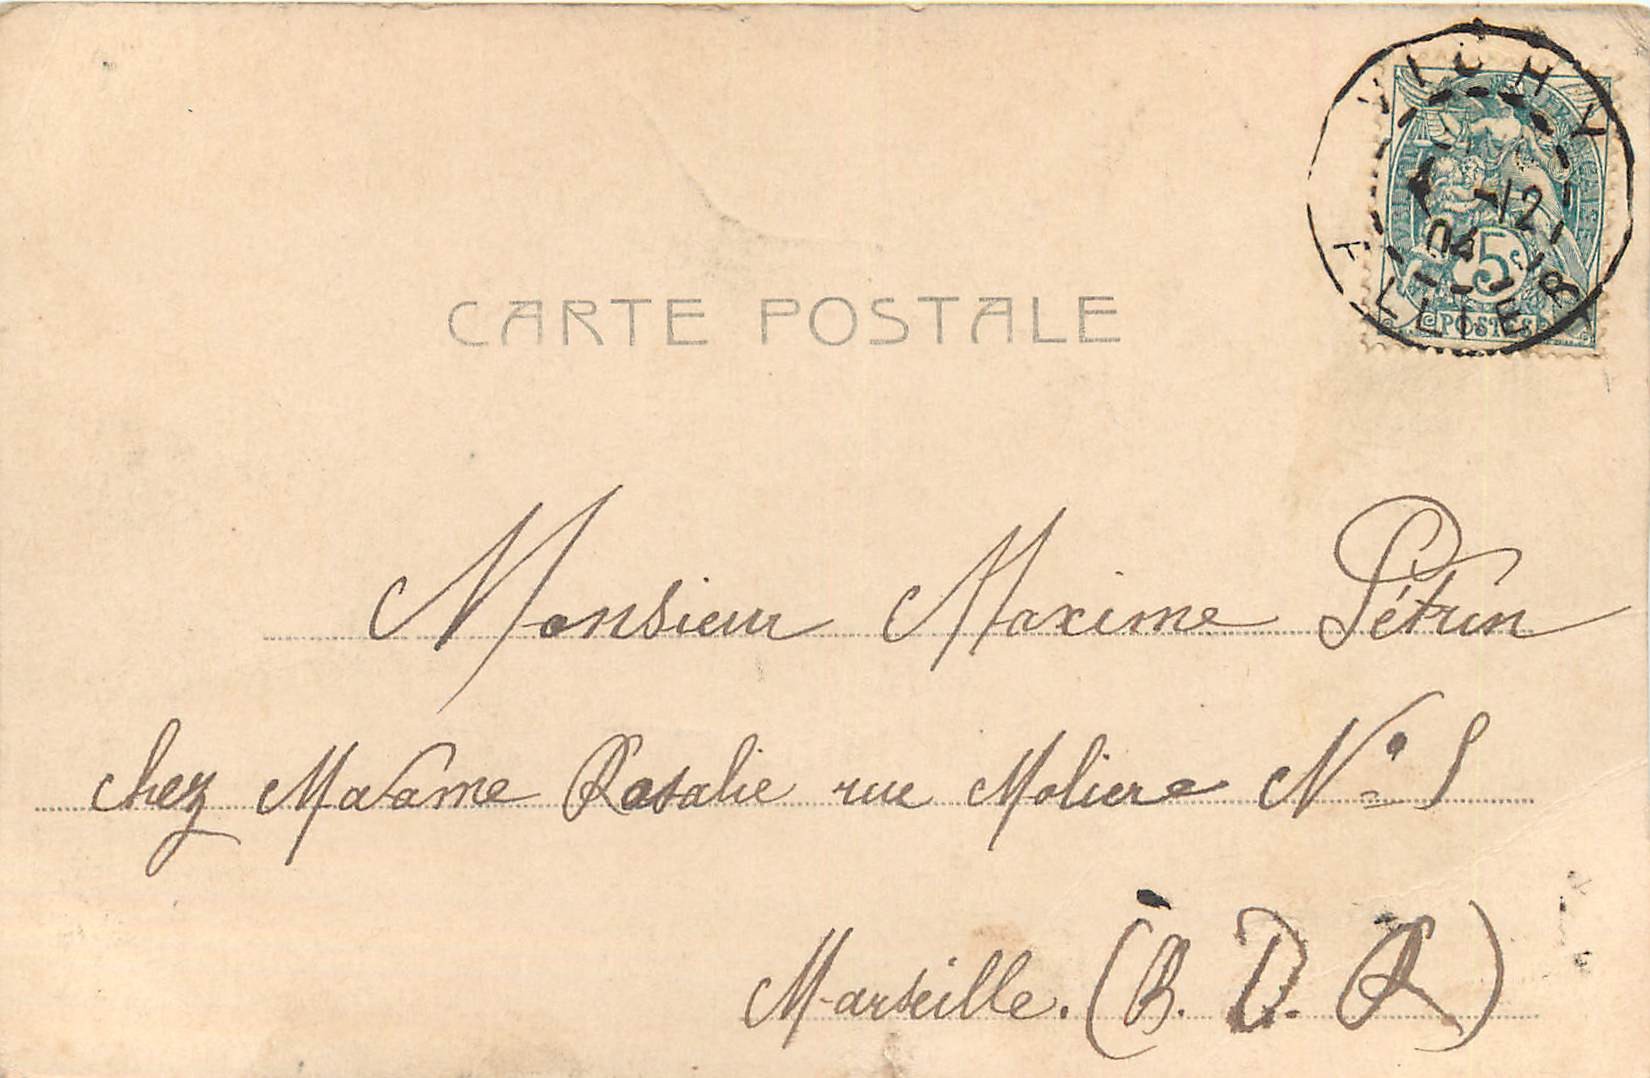 VICHY
-12
04
ALLIER
5c
POSTES
CARTE POSTALE
Monsieur Maxime Pétrin
chez Madame Rosalie rue Moliere N° 5
Marseille. (B. D. R)